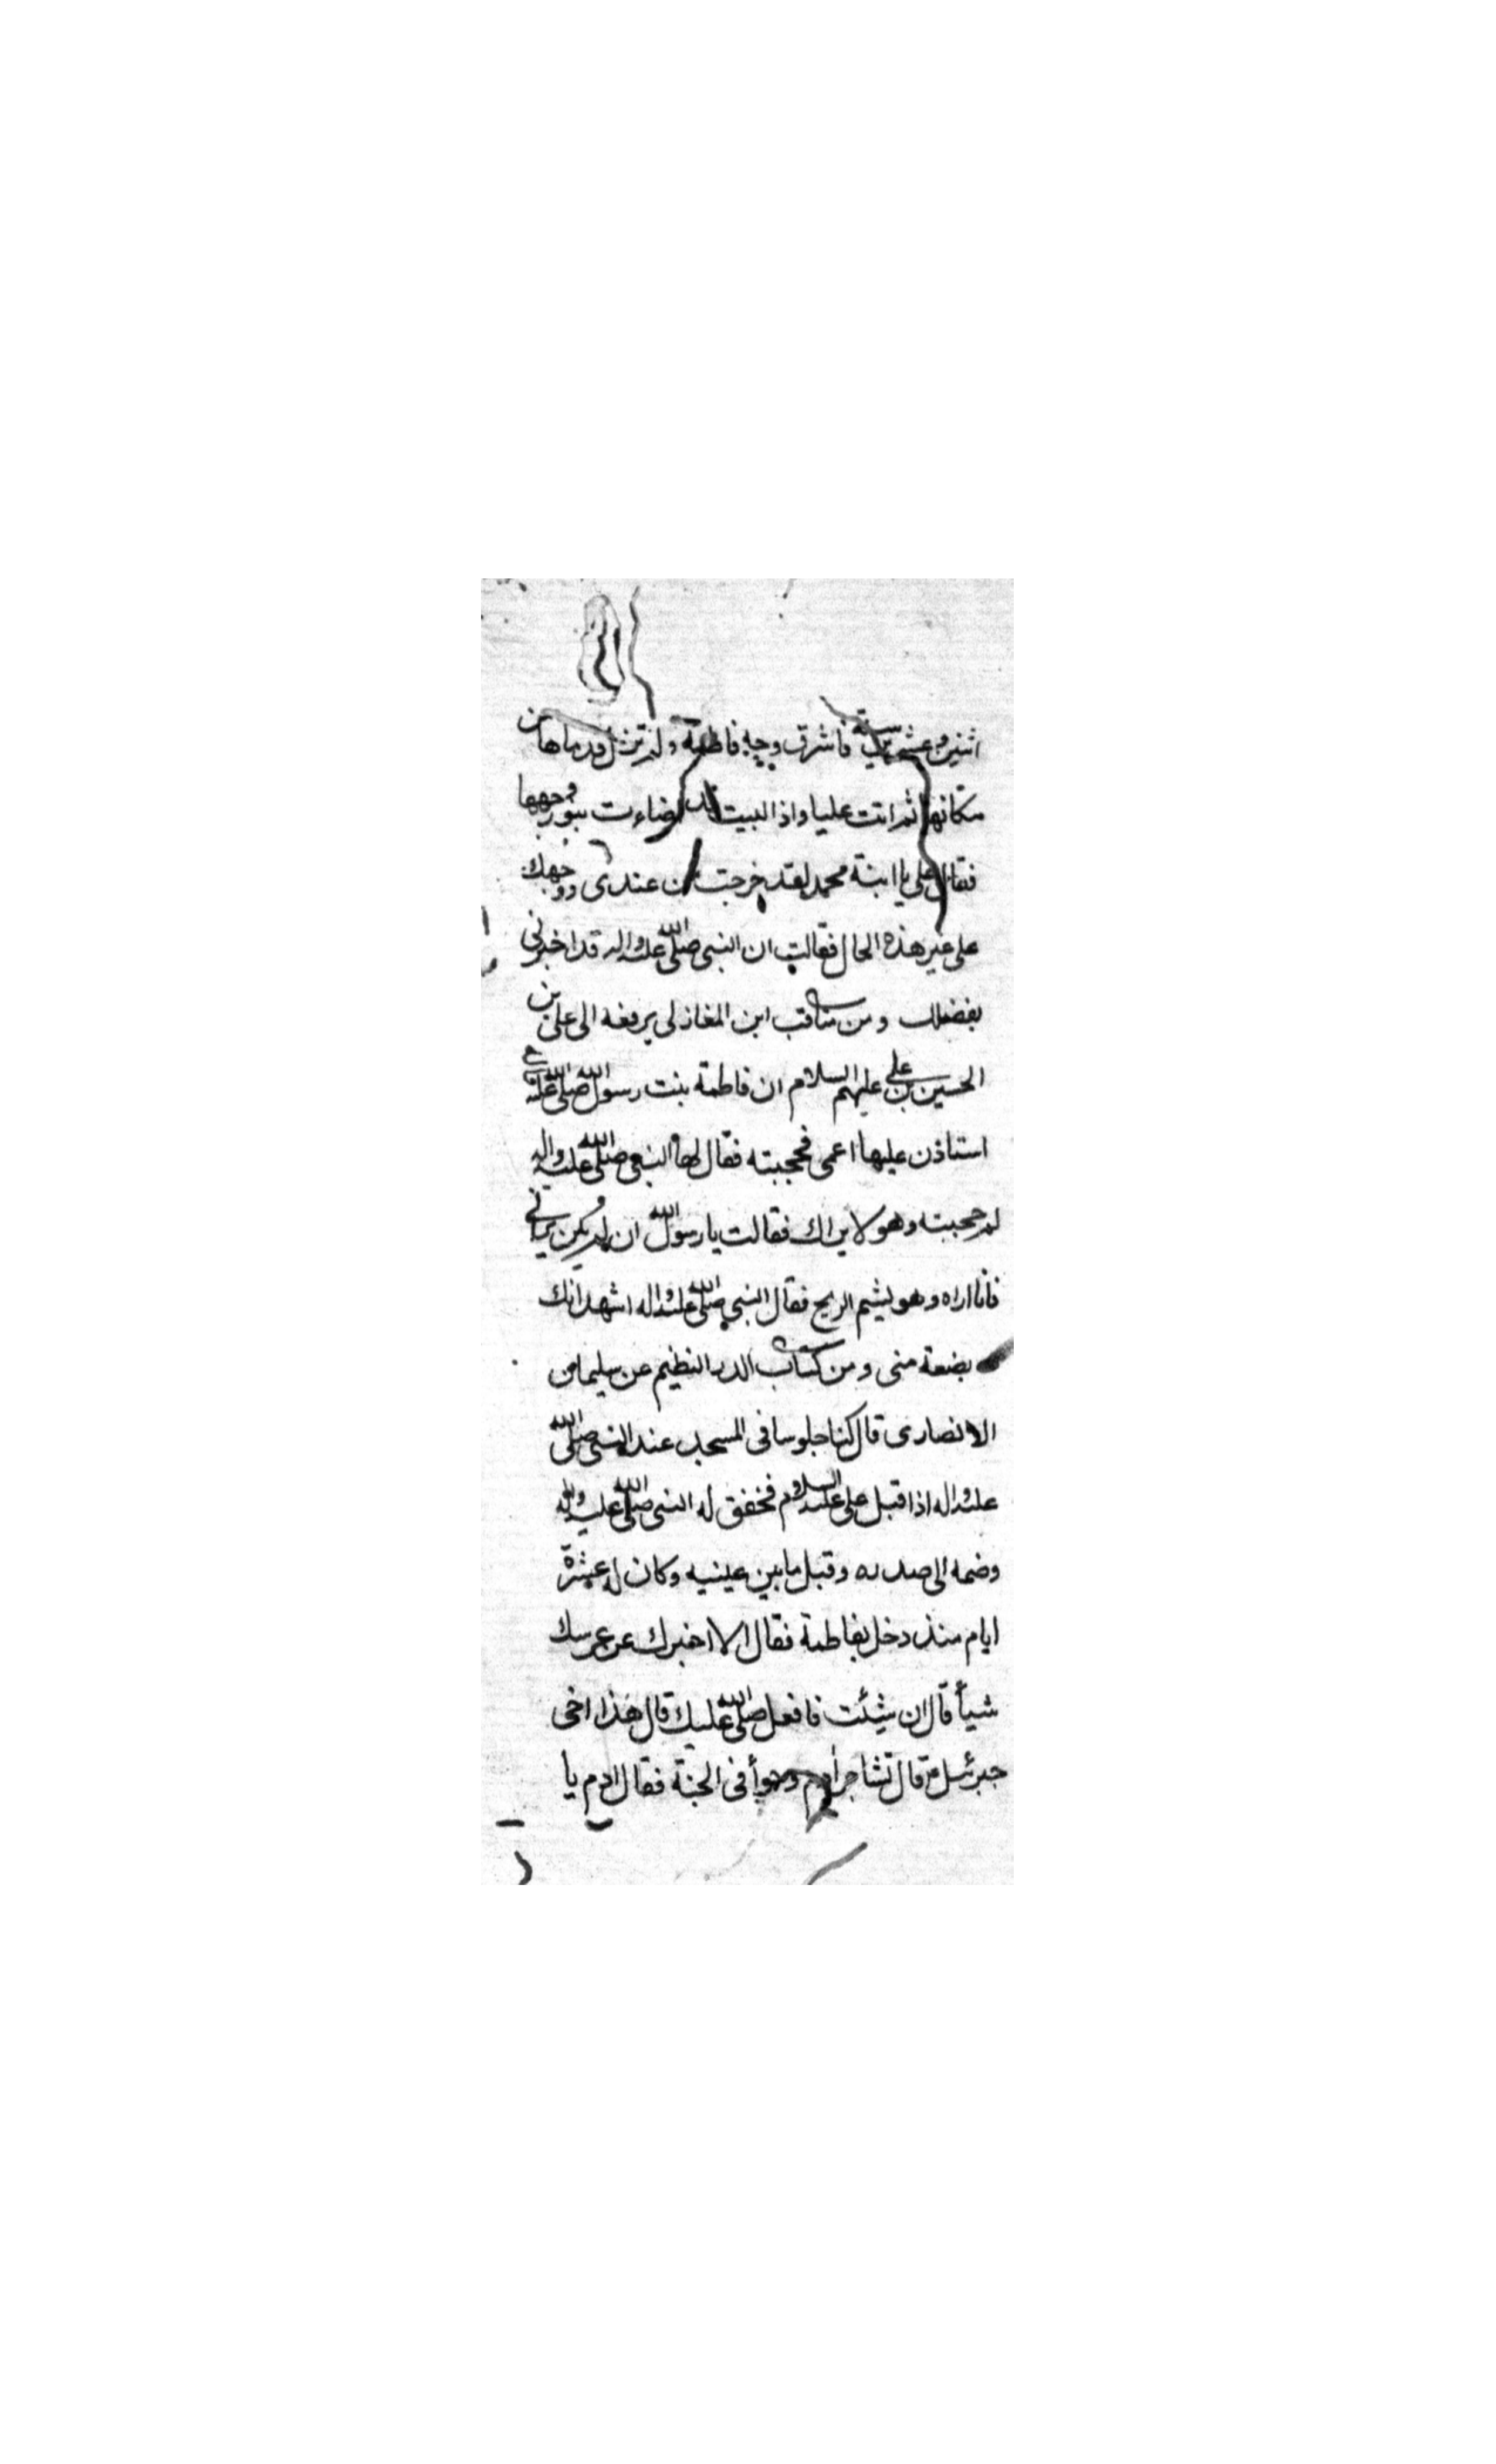 اثنين وعشرين سنة فاشرق وجه فاطمة ولم تزل قدماها من
مكانها ثم اتت عليا واذا البيت قد اضاءت بنور وجهها
فقال على يا ابنة محمد لقد خرجت من عندى ووجهك
على غير هذه الحال فقالت ان النبى صلى الله عليه واله قد اخبرنى
بفضلك ومن مناقب ابن المغازلى يرفعه الى على بن
الحسين بن على عليهم السلام ان فاطمة بنت رسول الله صلى الله عليه
استاذن عليها اعمى فحجبته فقال لها النبى صلى الله عليه واله
لم حجبته وهو لا يراك فقالت يا رسول الله ان لم يكن يرانى
فانا اراه وهو يشم الريح فقال النبى صلى الله عليه واله اشهد انك
بضعة منى ومن كتاب الدر النظيم عن سليمان
الانصارى قال كنا جلوسا فى المسجد عند النبى صلى الله
عليه واله اذا قبل على عليه السلام فخفق له النبى صلى الله عليه واله
وضمه الى صدره وقبل ما بين عينيه وكان له عشرة
ايام منذ دخل بفاطمة فقال الا اخبرك عن عرسك
شيأ قال ان شئت فافعل صلى الله عليك قال هذا اخى
جبرئيل قال تشاجر ادم وحوا فى الجنة فقال ادم يا